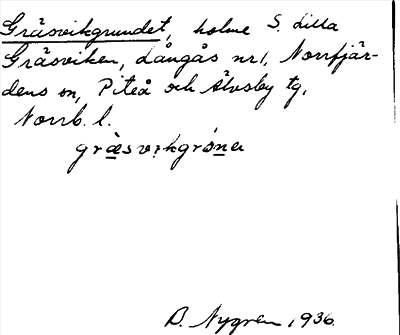 Gräsvikgrundet, holme S. Lilla
Gräsviken, Långås nr 1, Norrfjär-
dens sn, Piteå och Älvsby tg,
Norrb. l.
græsvikgrónɐ
B. Nygren, 1936.